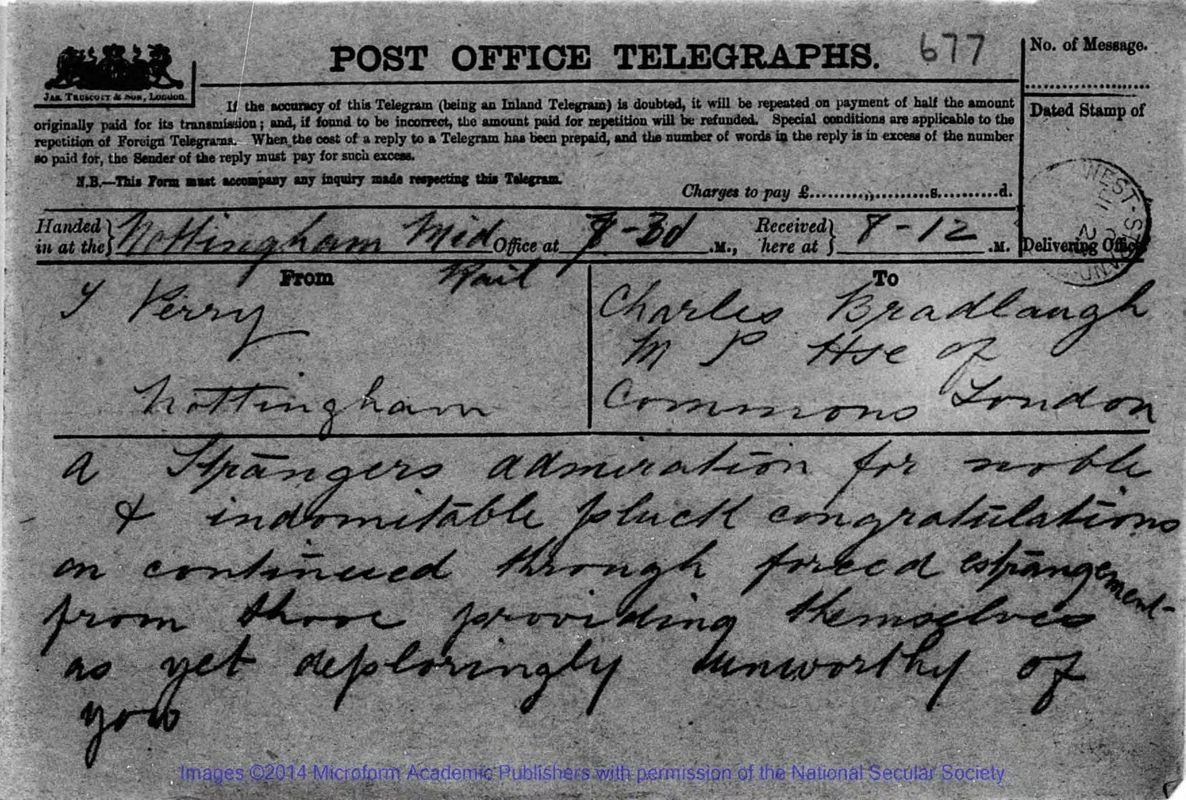 JAS. TRUSCOTT & SON, LONDON.
POST OFFICE TELEGRAPHS.
677
No. of Message.
If the accuracy of this Telegram (being an Inland Telegram) is doubted, it will be repeated on payment of half the amount
originally paid for its transmission; and, if found to be incorrect, the amount paid for repetition will be refunded. Special conditions are applicable to the
repetition of Foreign Telegrams. When the cost of a reply to a Telegram has been prepaid, and the number of words in the reply is in excess of the number
so paid for, the Sender of the reply must pay for such excess.
N.B.—This Form must accompany any inquiry made respecting this Telegram.
Charges to pay £ s. d.
Dated Stamp of
WEST STRAND
Delivering Office
Handed in at the } Nottingham Mid Office at .M., Received here at } 8-12 .M.
Rail
From
Perry
Nottingham
To
Charles Bradlaugh
M P Hse of
Commons London
A Strangers admiration for noble
& indomitable pluck congratulations
on continued through forced estrangement
from those providing themselves
as yet deploringly unworthy of
you
Images ©2014 Microform Academic Publishers with permission of the National Secular Society